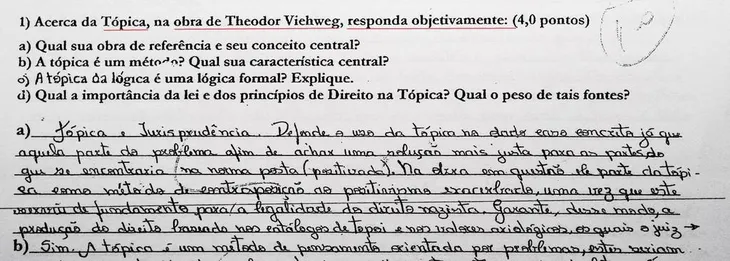 1) Acerca da Tópica, na obra de Theodor Viehweg, responda objetivamente: (4,0 pontos)
a) Qual sua obra de referência e seu conceito central?
b) A tópica é um método? Qual sua característica central?
c) A tópica da lógica é uma lógica formal? Explique.
d) Qual a importância da lei e dos princípios de Direito na Tópica? Qual o peso de tais fontes?
a) Tópica e Jurisprudência. Defende o uso da tópica no dado caso concreto já que
aquela parte do problema afim de achar uma solução mais justa para as partes do
que se encontraria na norma posta (positivada). Na obra em questão ele parte da tópi-
ca como método de contraposição ao positivismo exacerbado, uma vez que este
serviu de fundamento para a legalidade do direito nazista. Garante, desse modo, a
produção do direito baseado nos catálogos de topoi e nos valores axiológicos, os quais o juiz →
b) Sim. A tópica é um método de pensamento orientado por problemas, estes seriam